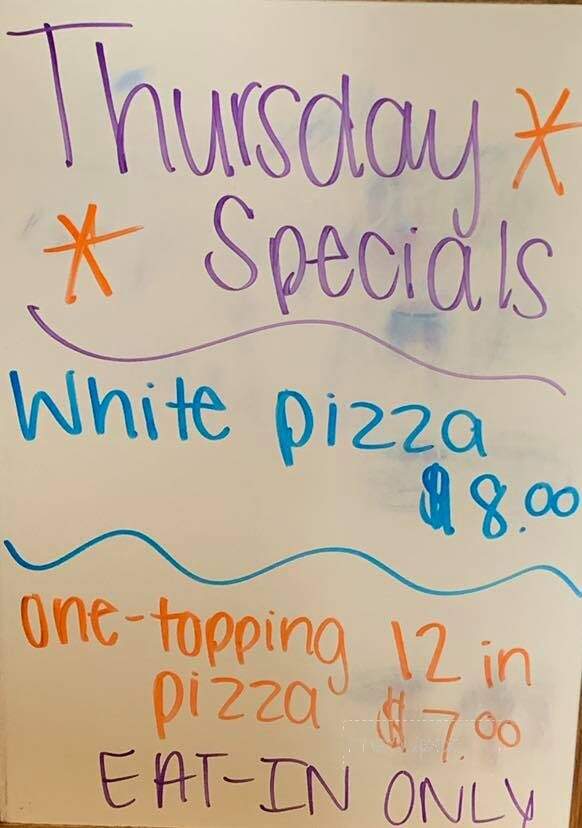 Thursday
Specials
White pizza
$8.00
one-topping 12 in
pizza $7.00
EAT-IN ONLY